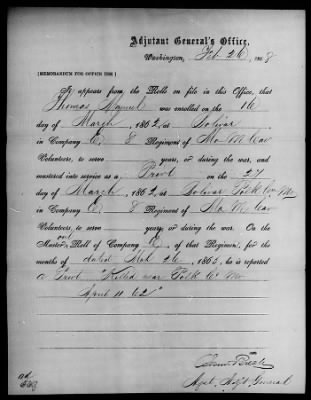 Adjutant General's Office,
Washington, Feb 26, 1868
[MEMORANDUM FOR OFFICE USE]
It appears from the Rolls on file in this Office, that
Thomas Manuel was enrolled on the 16
day of March, 1862, at Bolivar
in Company E, 8 Regiment of Mo M Cav
Volunteers, to serve years, or during the war, and
mustered into service as a Privt on the 27
day of March, 1862, at Bolivar Polk Co Mo
in Company E, 8 Regiment of Mo M Cav
Volunteers, to serve years, or during the war. On the
Muster out Roll of Company E, of that Regiment, for the
months of dated 26, 1865, he is reported
a Privt "Killed near Polk Co Mo
April 11 62"
Asst. Adjt. General